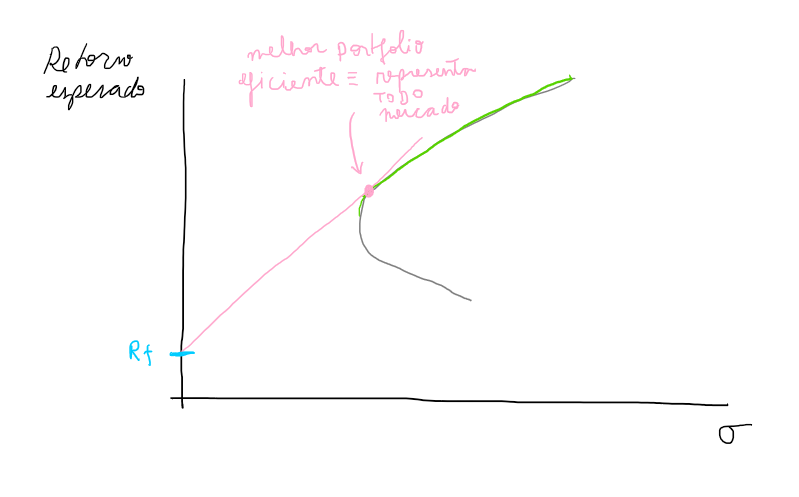 Retorno
esperado
melhor portfolio
eficiente ≡ representa
TODO
mercado
Rf
σ